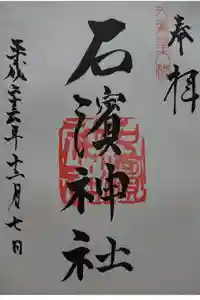 奉拝
石濱神社
平成二十六年十二月七日